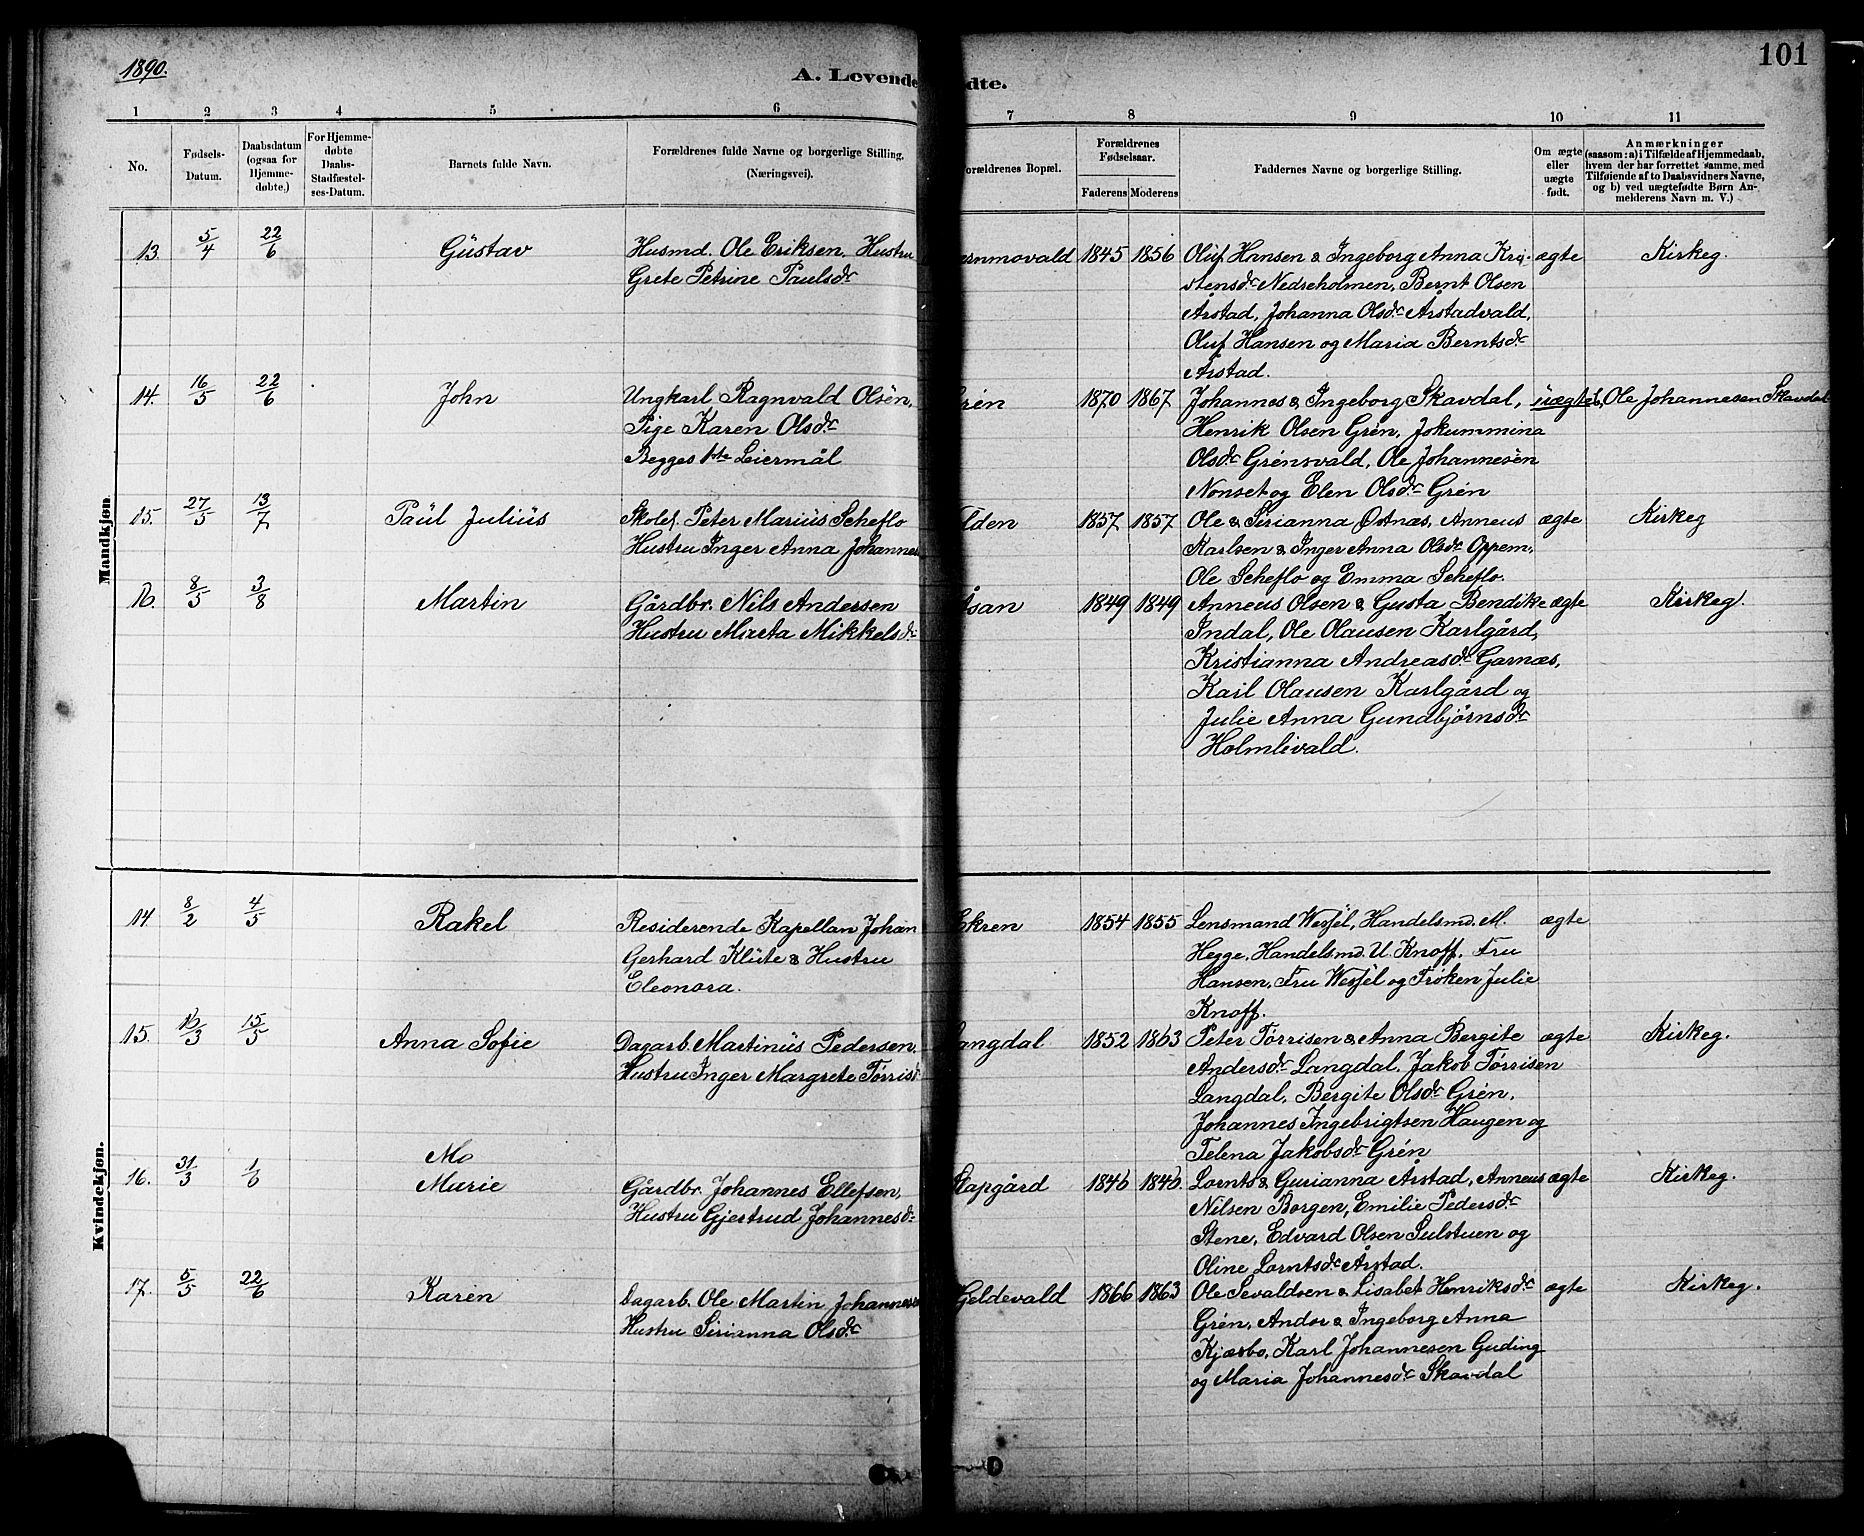 1890.
101
A. Levende
dte.
1 2 3 4 5 6 7 8 9 10 11
No.
Fødsels-
Datum.
Daabsdatum
(ogsaa for
Hjemme-
døbte,)
For Hjemme-
døbte
Daabs-
Stadfæstel-
ses-Datum.
Barnets fulde Navn.
Forældrenes fulde Navne og borgerlige Stilling.
(Næringsvei).
Forældrenes Bopæl.
Forældrenes
Fødselsaar.
Faderens Moderens
Faddernes Navne og borgerlige Stilling.
Om ægte
eller
uægte
født.
Anmærkninger
(saasom: a) i Tilfælde af Hjemmedaab,
hvem der har forrettet samme, med
Tilføiende af to Daabsvidners Navne,
og b) ved uægtefødte Børn An-
melderens Navn m. V.)
Mandkjøn
13. 5/4 22/6 Gustav
Husmd. Ole Eriksen, Hustru
Grete Petrine Paulsdr
ernmovald 1845 1856
Oluf Hansen & Ingeborg Anna Kri-
stensdr Nedreholmen, Bernt Olsen
Årstad, Johanna Olsdr Årstadvald,
Oluf Hansen og Maria Berntsdr
Årstad.
ægte Kirkeg.
14. 16/5 22/6 John
Ungkarl Ragnvald Olsen,
Pige Karen Olsdr
Begges 1ste Leiermål
Grén 1870 1867
Johannes & Ingeborg Skavdal,
Henrik Olsen Grén, Jokummina
Olsdr Grénsvald, Ole Johannesen
Nonset og Elen Olsdr Grén
uægte Ole Johannesen Skavdal
15. 27/5 13/7 Paul Julius
Skolel. Peter Marius Scheflo
Hustru Inger Anna Johannes
lden 1857 1857
Ole & Sirianna Østnæs, Anneus
Karlsen & Inger Anna Olsdr Oppem,
Ole Scheflo og Emma Scheflo.
ægte Kirkeg
16. 8/5 3/8 Martin
Gårdbr. Nils Andersen
Hustru Marta Mikkelsdr
Åsan 1849 1849
Anneus Olsen & Gusta Bendike
Indal, Ole Olausen Karlgård,
Kristianna Andreasdr Garnæs,
Karl Olausen Karlgård og
Julie Anna Gundbjørnsdr
Holmlivald.
ægte Kirkeg.
Kvindekjøn.
14. 8/2 4/5 Rakel
Residerende Kapellan Johan
Gerhard Klüte & Hustru
Eleonora.
Ekren 1854 1855
Lensmand Wessel, Handelsmd. M.
Hegge, Handelsmd. U. Knoff, Fru
Hansen, Fru Wessel og Frøken Julie
Knoff.
ægte
15. 16/3 15/5 Anna Sofie
Dagarb. Martinus Pedersen,
Hustru Inger Margrete Tørrisd
angdal 1852 1863
Peter Tørrisen & Anna Bergite
Andersdr Langdal, Jakob Tørrisen
Langdal, Bergite Olsdr Grén,
Johannes Ingebrigtsen Haugen og
Telena Jakobsdr Grén
ægte Kirkeg.
16. 31/3 1/6 Mo
Murie
Gårdbr. Johannes Ellefsen,
Hustru Gjertrud Johannesdr
lapgård 1846 1846
Lornts & Gurianna Årstad, Anneus
Nilsen Borgen, Emilie Pedersdr
Stene, Edvard Olsen Sulstuen og
Oline Lorntsdr Årstad.
ægte Kirkeg.
17. 5/5 22/6 Karen
Dagarb. Ole Martin Johannesen
Hustru Sirianna Olsdr
Geldevald 1866 1863
Ole Sevaldsen & Lisabet Henriksdr
Grén, Andor & Ingeborg Anna
Kjæsbo, Karl Johannesen Guding
og Maria Johannesdr Skavdal
ægte Kirkeg.